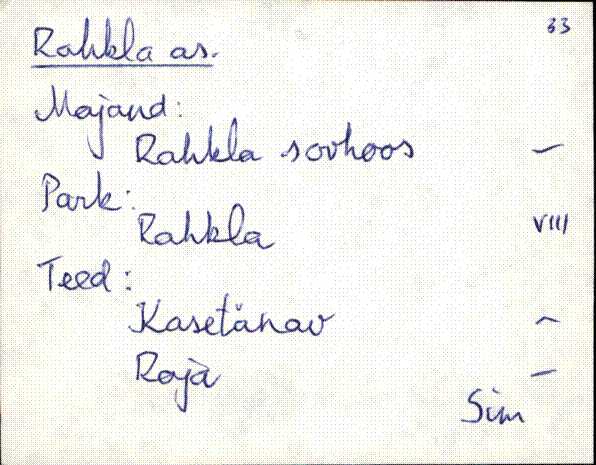 33
Rahkla as.
Majand:
Rahkla sovhoos –
Park:
Rahkla VIII
Teed:
Kasetänav –
Raja –
Sim